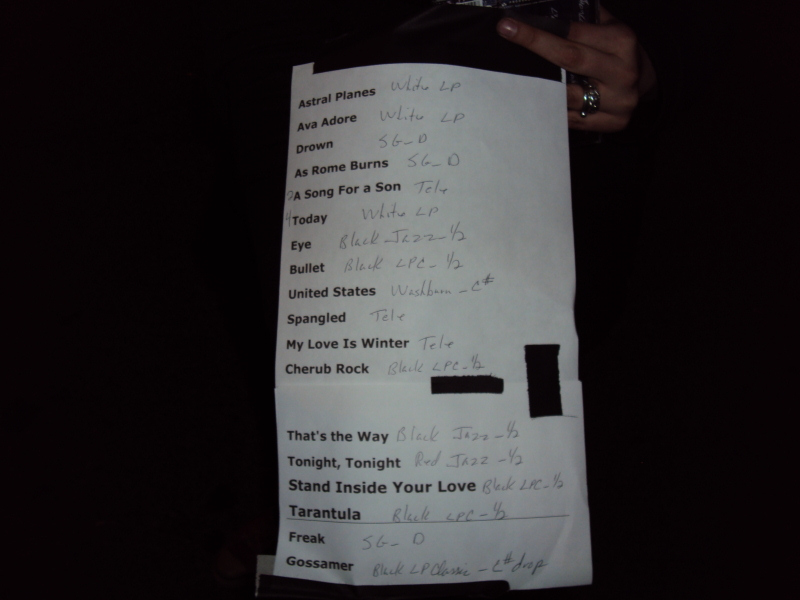 Astral Planes White LP
Ava Adore White LP
Drown SG-D
As Rome Burns SG-D
A Song For a Son Tele
4 Today White LP
Eye Black Jazz-1/2
Bullet Black LPC-1/2
United States Washburn-C#
Spangled Tele
My Love Is Winter Tele
Cherub Rock Black LPC-1/2
That's the Way Black Jazz-1/2
Tonight, Tonight Red Jazz-1/2
Stand Inside Your Love Black LPC-1/2
Tarantula Black LPC-1/2
Freak SG-D
Gossamer Black LP Classic-C# drop